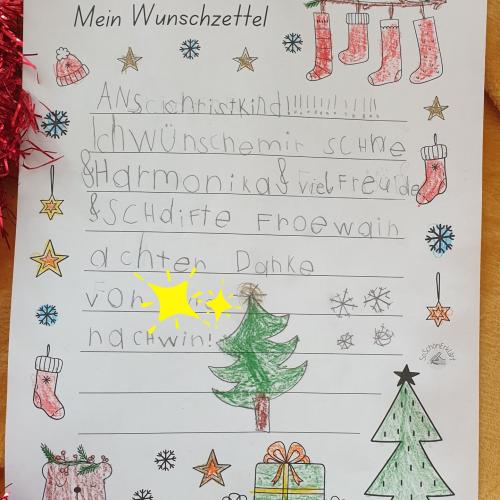 Mein Wunschzettel
ANS christkind!!!!!!!!!!!!
Ich Wünsche mir SCHne
&Harmonika& viel Freude
& SCHdifte Froewain
achten Danke
von
nachwin!
SoSchönErklärt